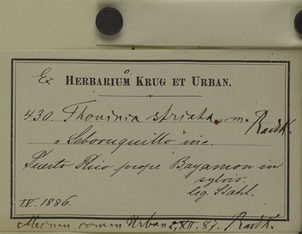 Ex Herbarium Krug et Urban.
430. Thouinia striata m. Radlk.
"Seboruquillo" inc.
Puerto Rico prope Bayamon in
sylvis
leg. Stahl.
IV. 1886.
Urban XII. 87. Radlk.